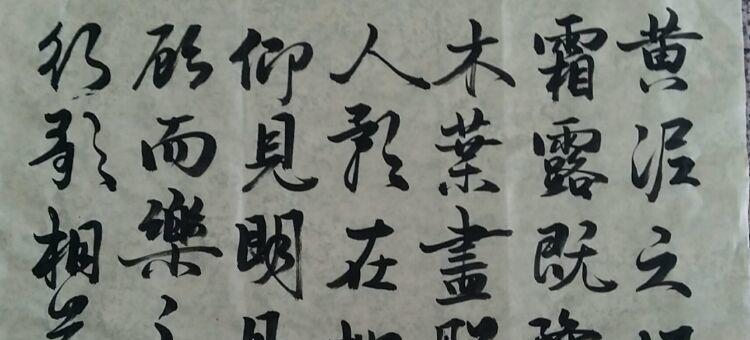 黄泥之
霜露既
木葉盡
人影在
仰見明
顧而樂
行歌相